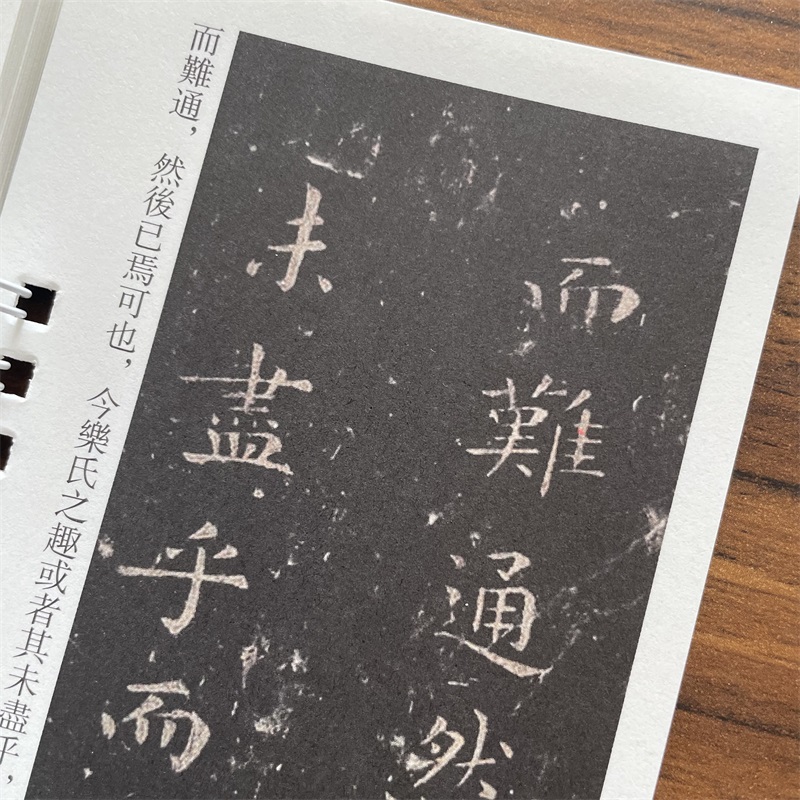 而難通然
未盡乎而
而難通，然後已焉可也，今樂氏之趣或者其未盡乎，